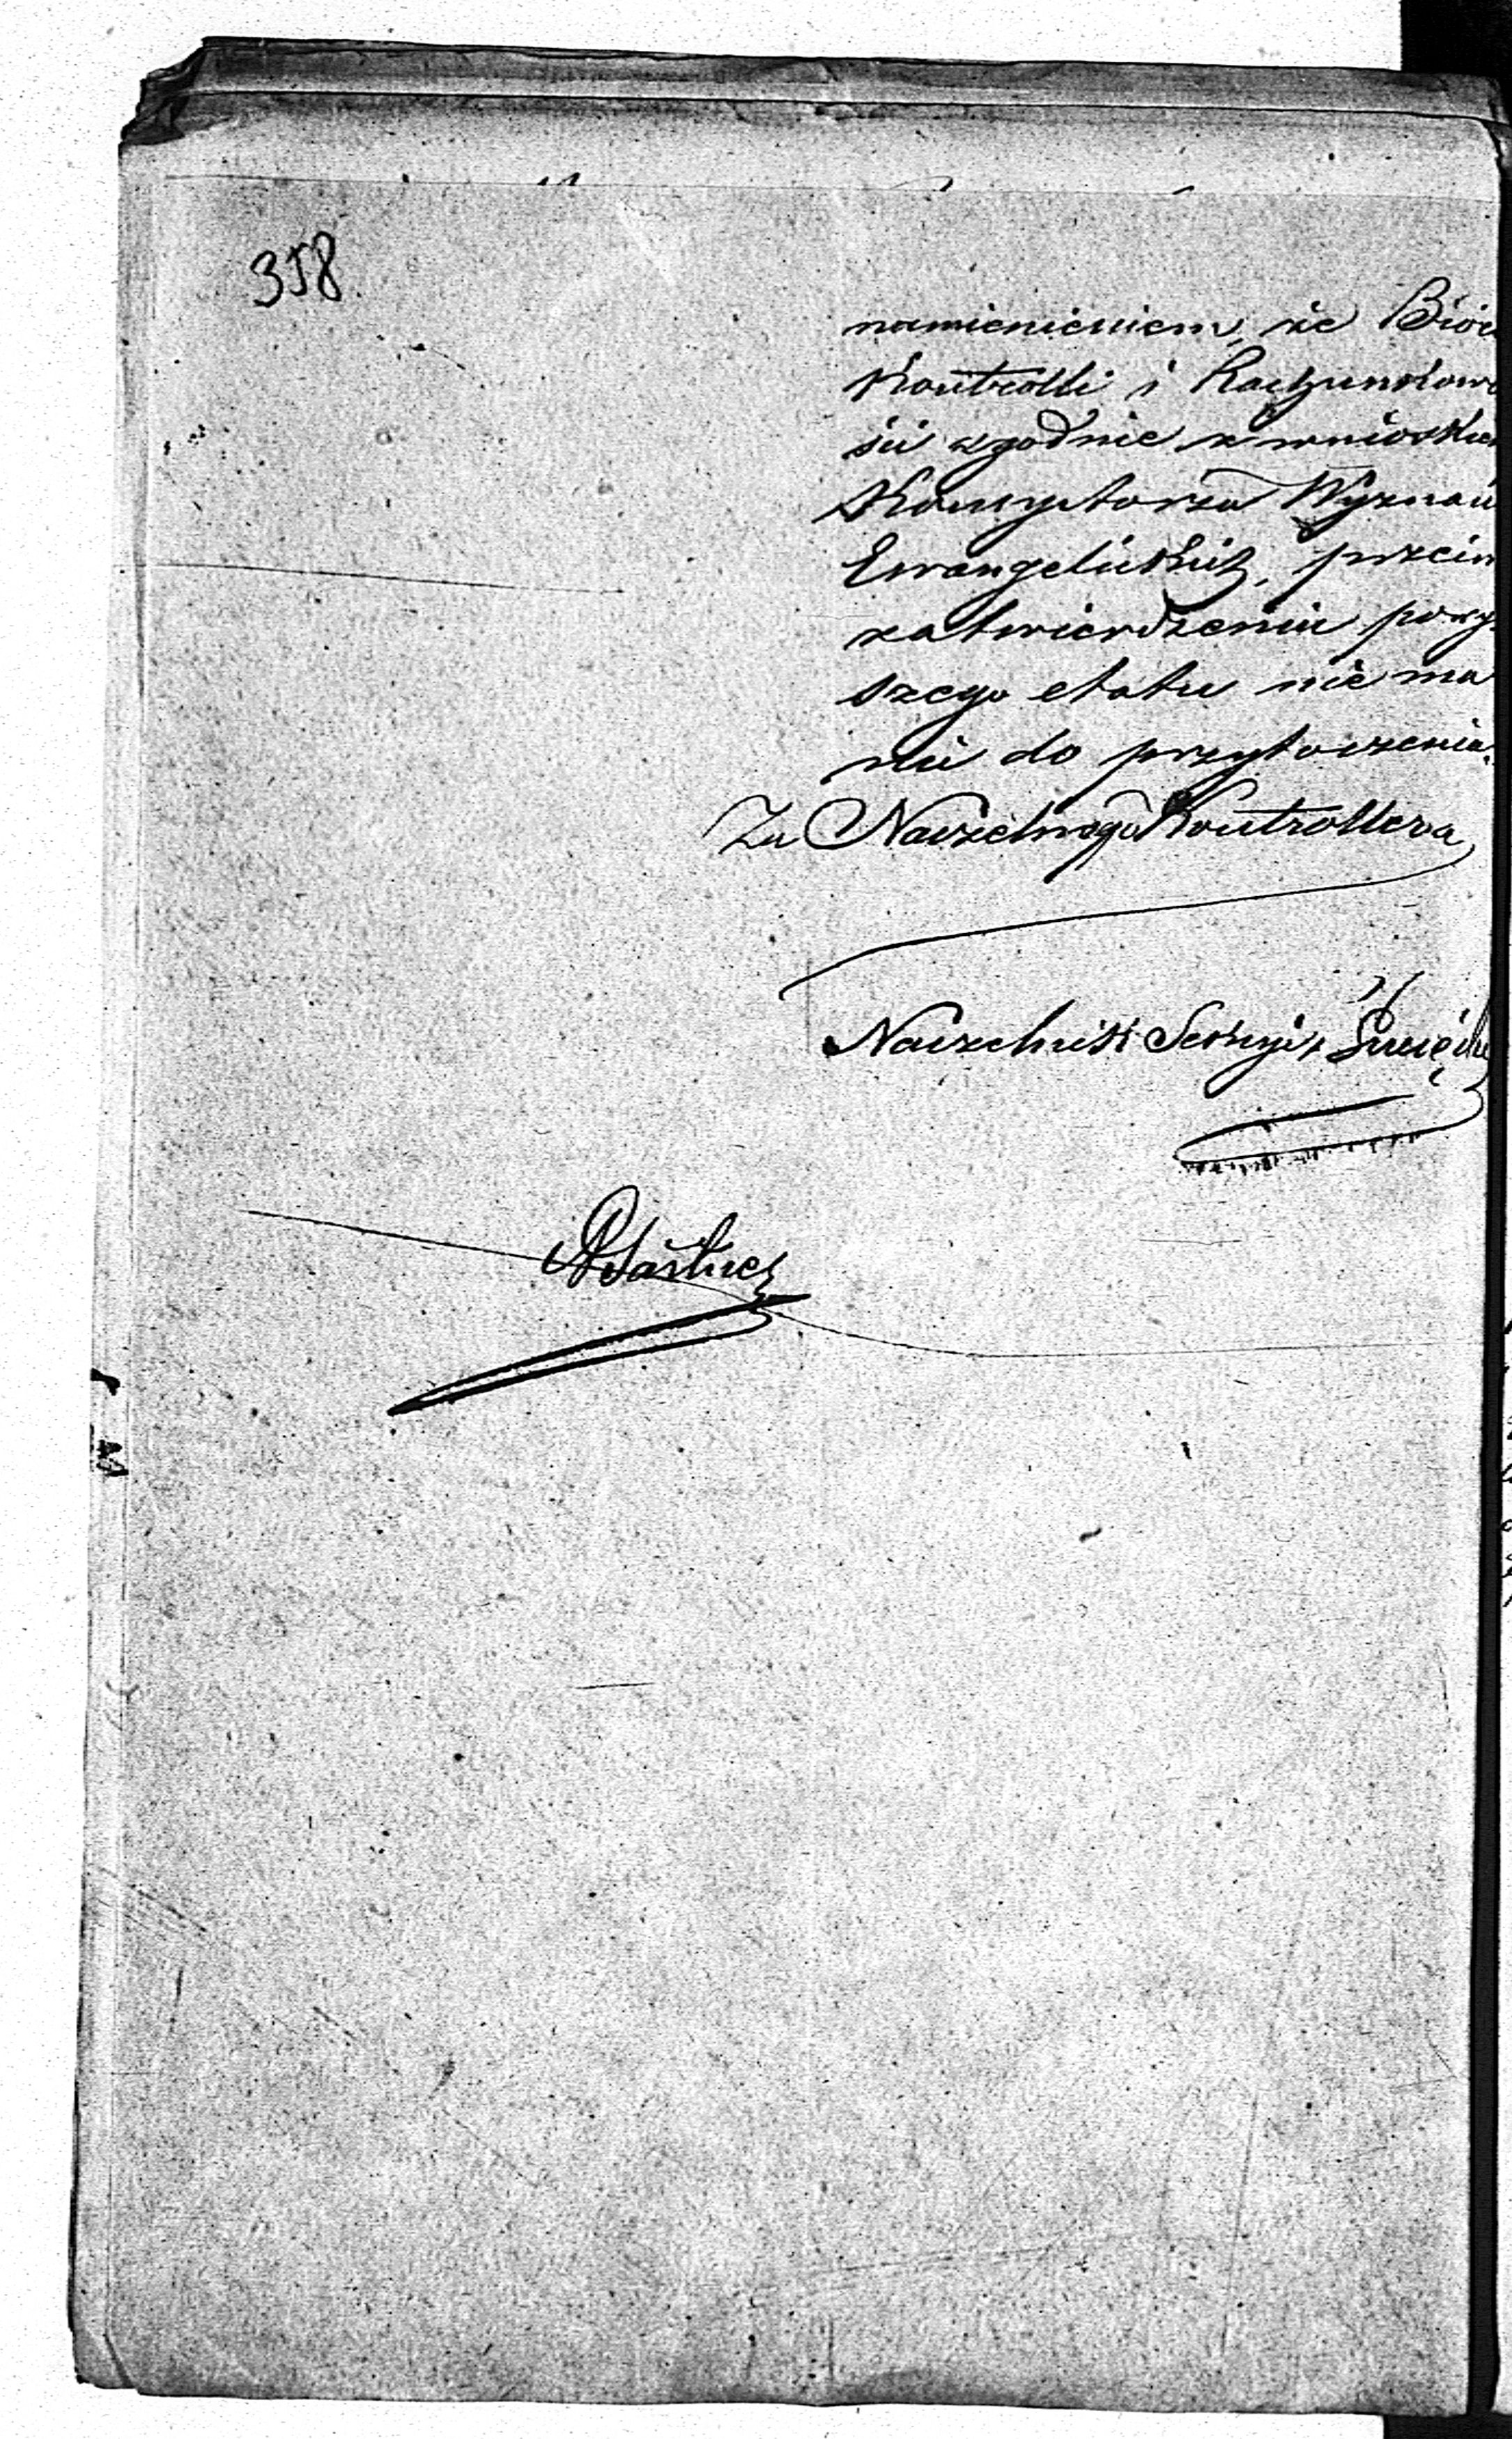 358
namienieniem, że Bióro
Kontrolli i Rachunkowo
ści zgodnie z wnioskiem
Konsystorza Wyznań
Ewangelickich, przeciw
zatwierdzeniu powyż
szego etatu nie ma
nic do przytoczenia.
Za Naczelnego Kontrollera
Naczelnik Sekcyi